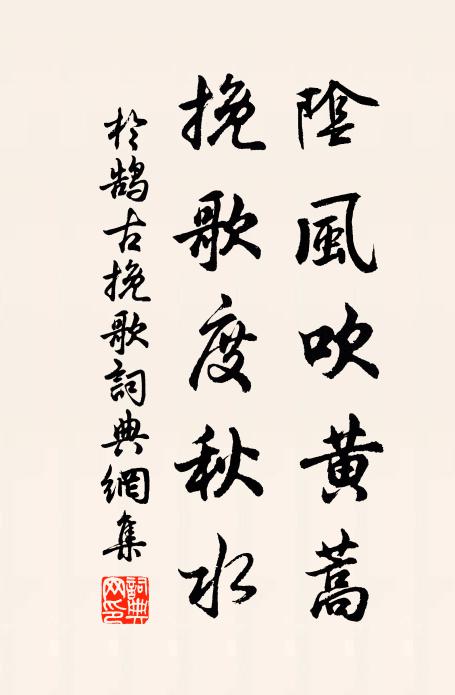 陰風吹黄蒿
挽歌度秋水
於鵠古挽歌詞典網集
詞典網印